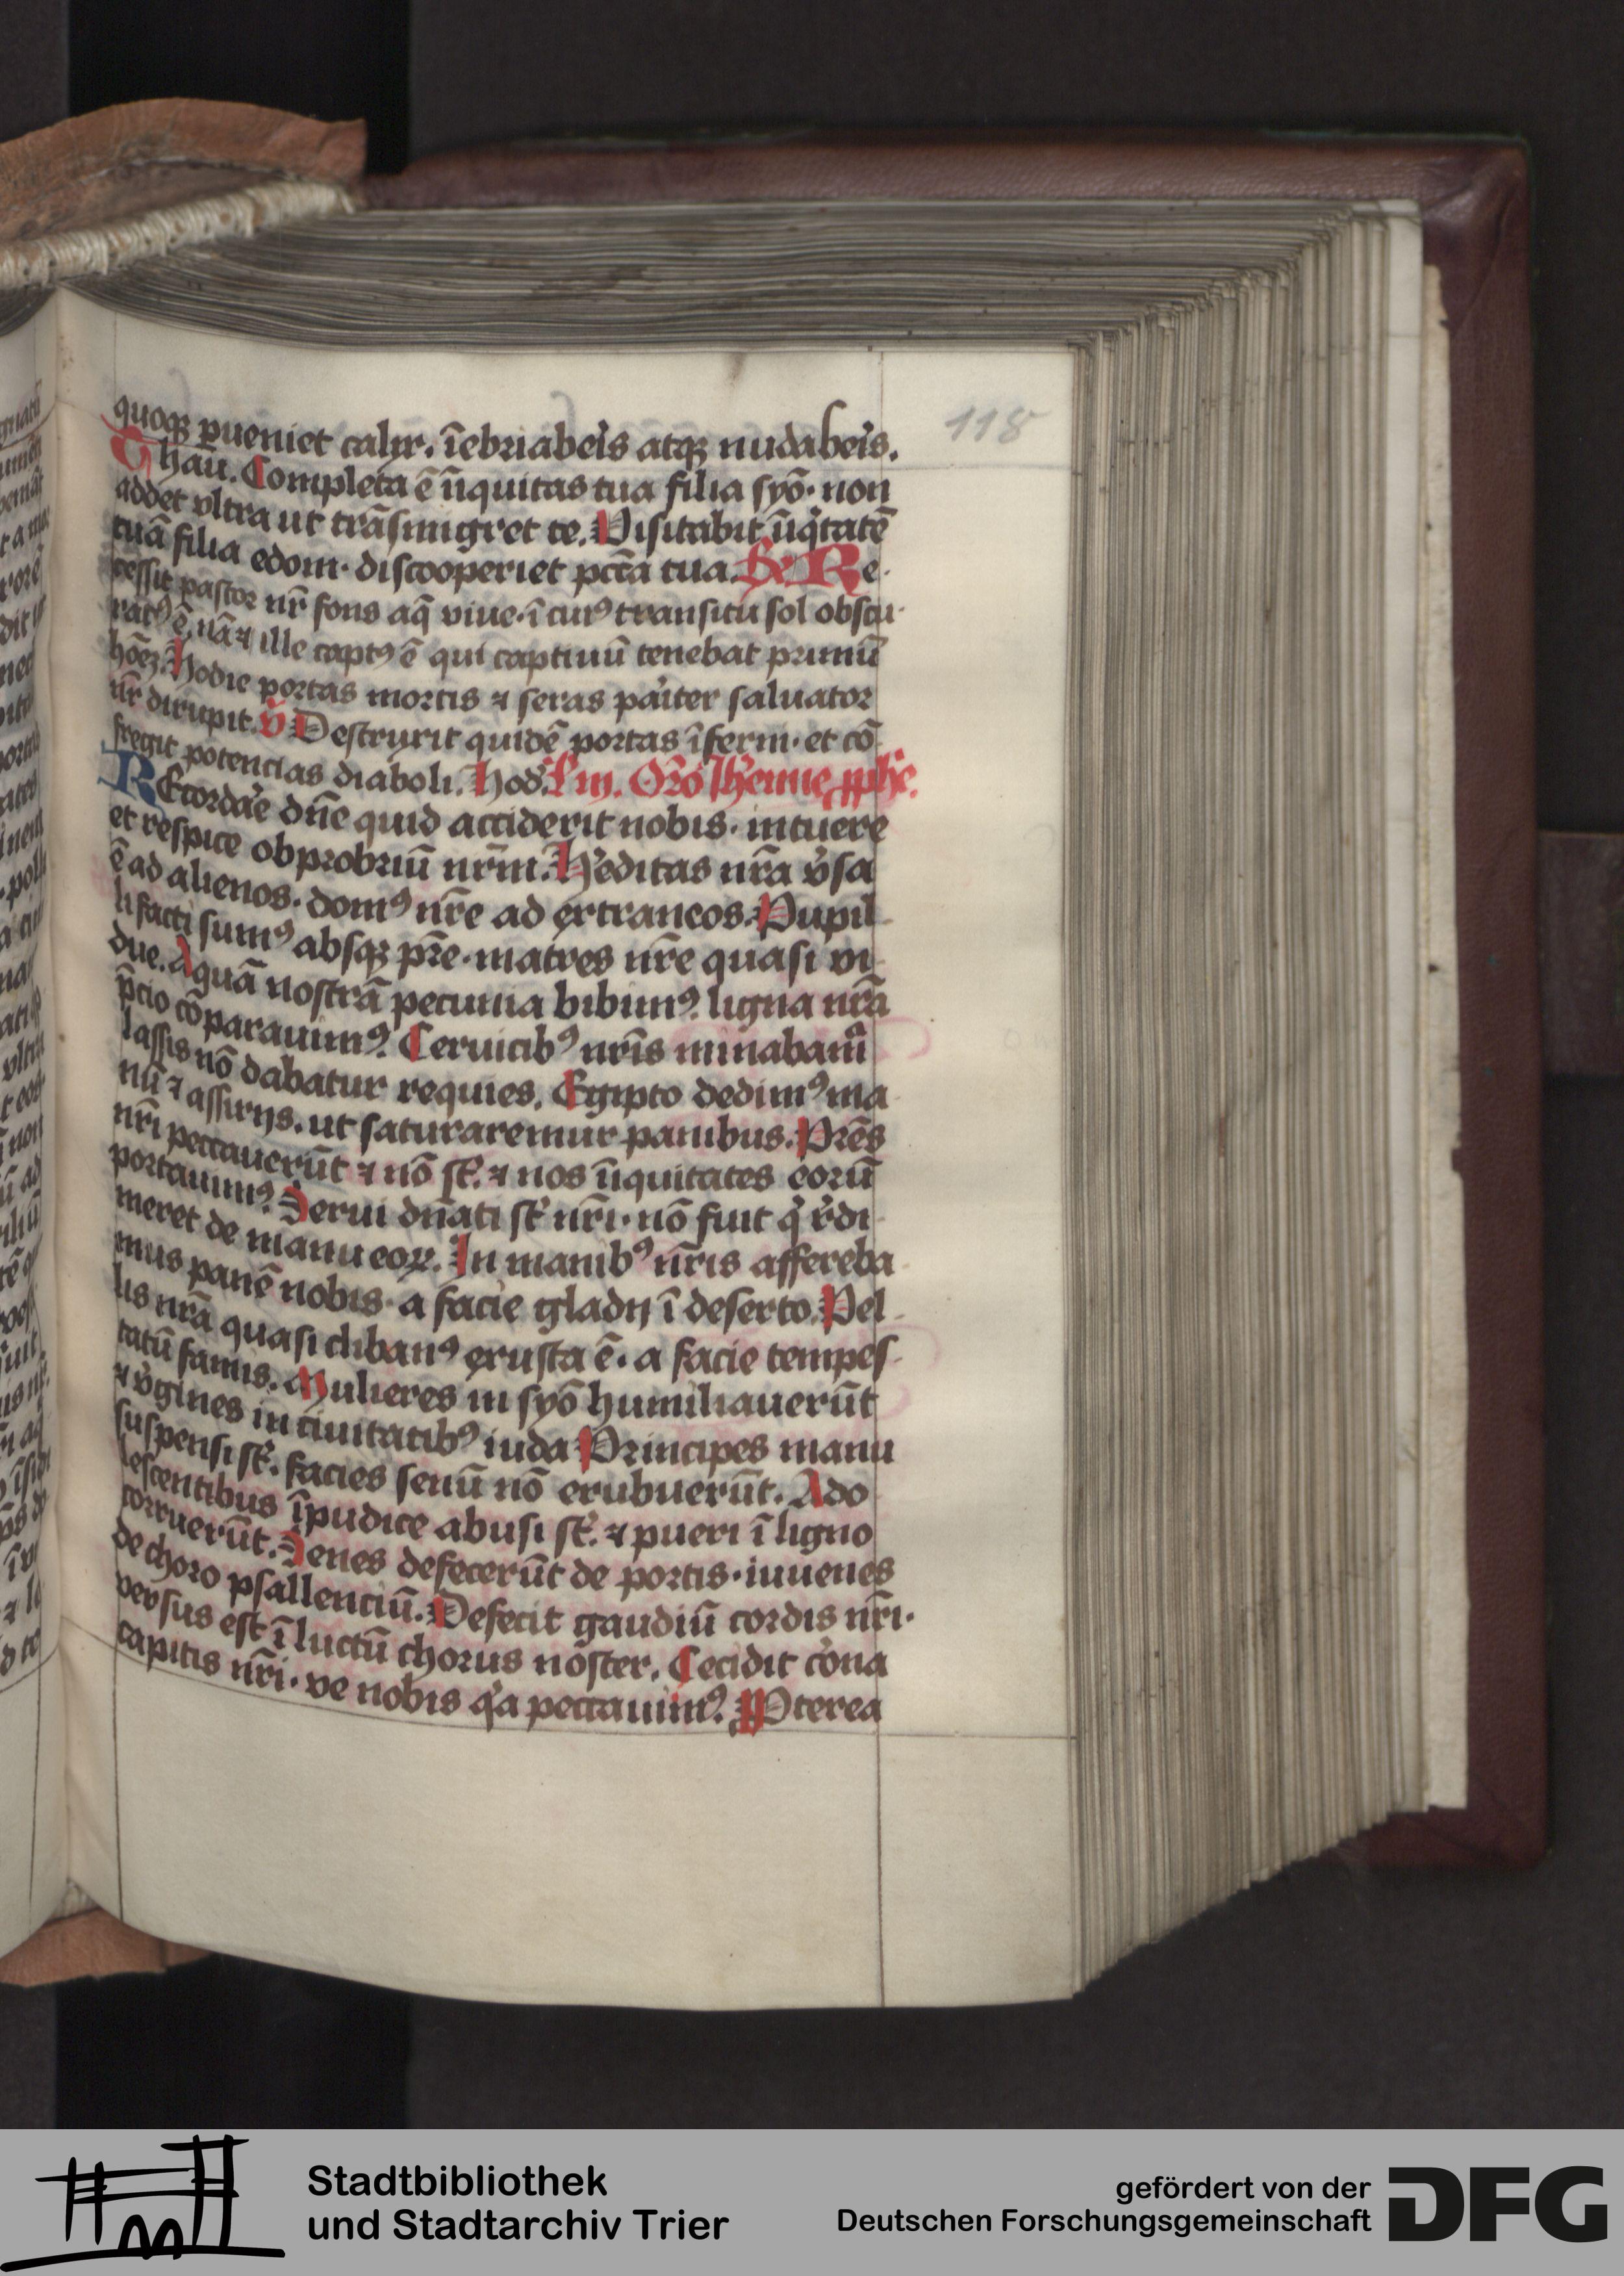 118
quoqꝫ ꝑueniet calix. īebriabeı̓s atqꝫ nudabeı̓s.
Thau. Completa ē īiquitas tua filia syō. non
addet vltra ut trāsmigret te. Visitabit īiqͥtatē
tuā filia edom. discooperiet pct̄a tua. Re-
cessit pastor nr̄ fons aq̄ viue. ī cuiꝰ transitu sol obscu
ratꝰ ē. nā ⁊ ille captꝰ ē qui captiuū tenebat primū
hoı̄em. Hodie portas mortis ⁊ seras paı̓ter saluator
nr̄ dirupit. v̓ Destruxit quidē portas īferni. et cō
fregit potencias diaboli. Hod̓. Or̄o Ih̓emie ꝓph̓e.
REcordar̓e dn̄e quid acciderit nobis. intuere
et respice obprobriū nr̄m. H̓editas nr̄a v̓sa
ē ad alienos. domꝰ nr̄e ad extraneos. Pupil
li facti sumꝰ absqꝫ pr̄e. matres nr̄e quasi vi
due. Aquā nostrā pecunia bibimꝰ. ligna nr̄a
p̄cio cōparauimꝰ. Ceruicibꝰ nr̄is minabamͣ
lassis nō dabatur requies. Egipto dedimꝰ ma
nū ⁊ assirijs. ut saturaremur panibus. Pr̄es
nr̄i peccauerūt ⁊ nō st̓. ⁊ nos īiquitates eorū
portauimꝰ. Serui dn̄ati st̓ nr̄i. nō fuit qͥ r̓di
meret de manu eoꝝ. In manibꝰ nr̄is affereba
mus panē nobis. a facie gladij ī deserto. Pel
lis nr̄a quasi clibanꝰ exusta ē. a facie tempes
tatū famis. Mulieres in syō humiliauerūt
⁊ v̓gines in ciuitatibꝰ iuda Principes manu
suspensi st̓. facies senū nō erubuerūt. Ado
lescentibus īpudice abusi st̓. ⁊ pueri ī ligno
corruerūt. Senes defecerūt de portis. iuuenes
de choro psallenciū. Defecit gaudiū cordis nr̄i.
versus est ī luctū chorus noster. Cecidit co̓na
capitis nr̄i. ve nobis qͥa peccauimꝰ. Ꝓpterea
Stadtbibliothek
und Stadtarchiv Trier
gefördert von der
Deutschen Forschungsgemeinschaft
DFG